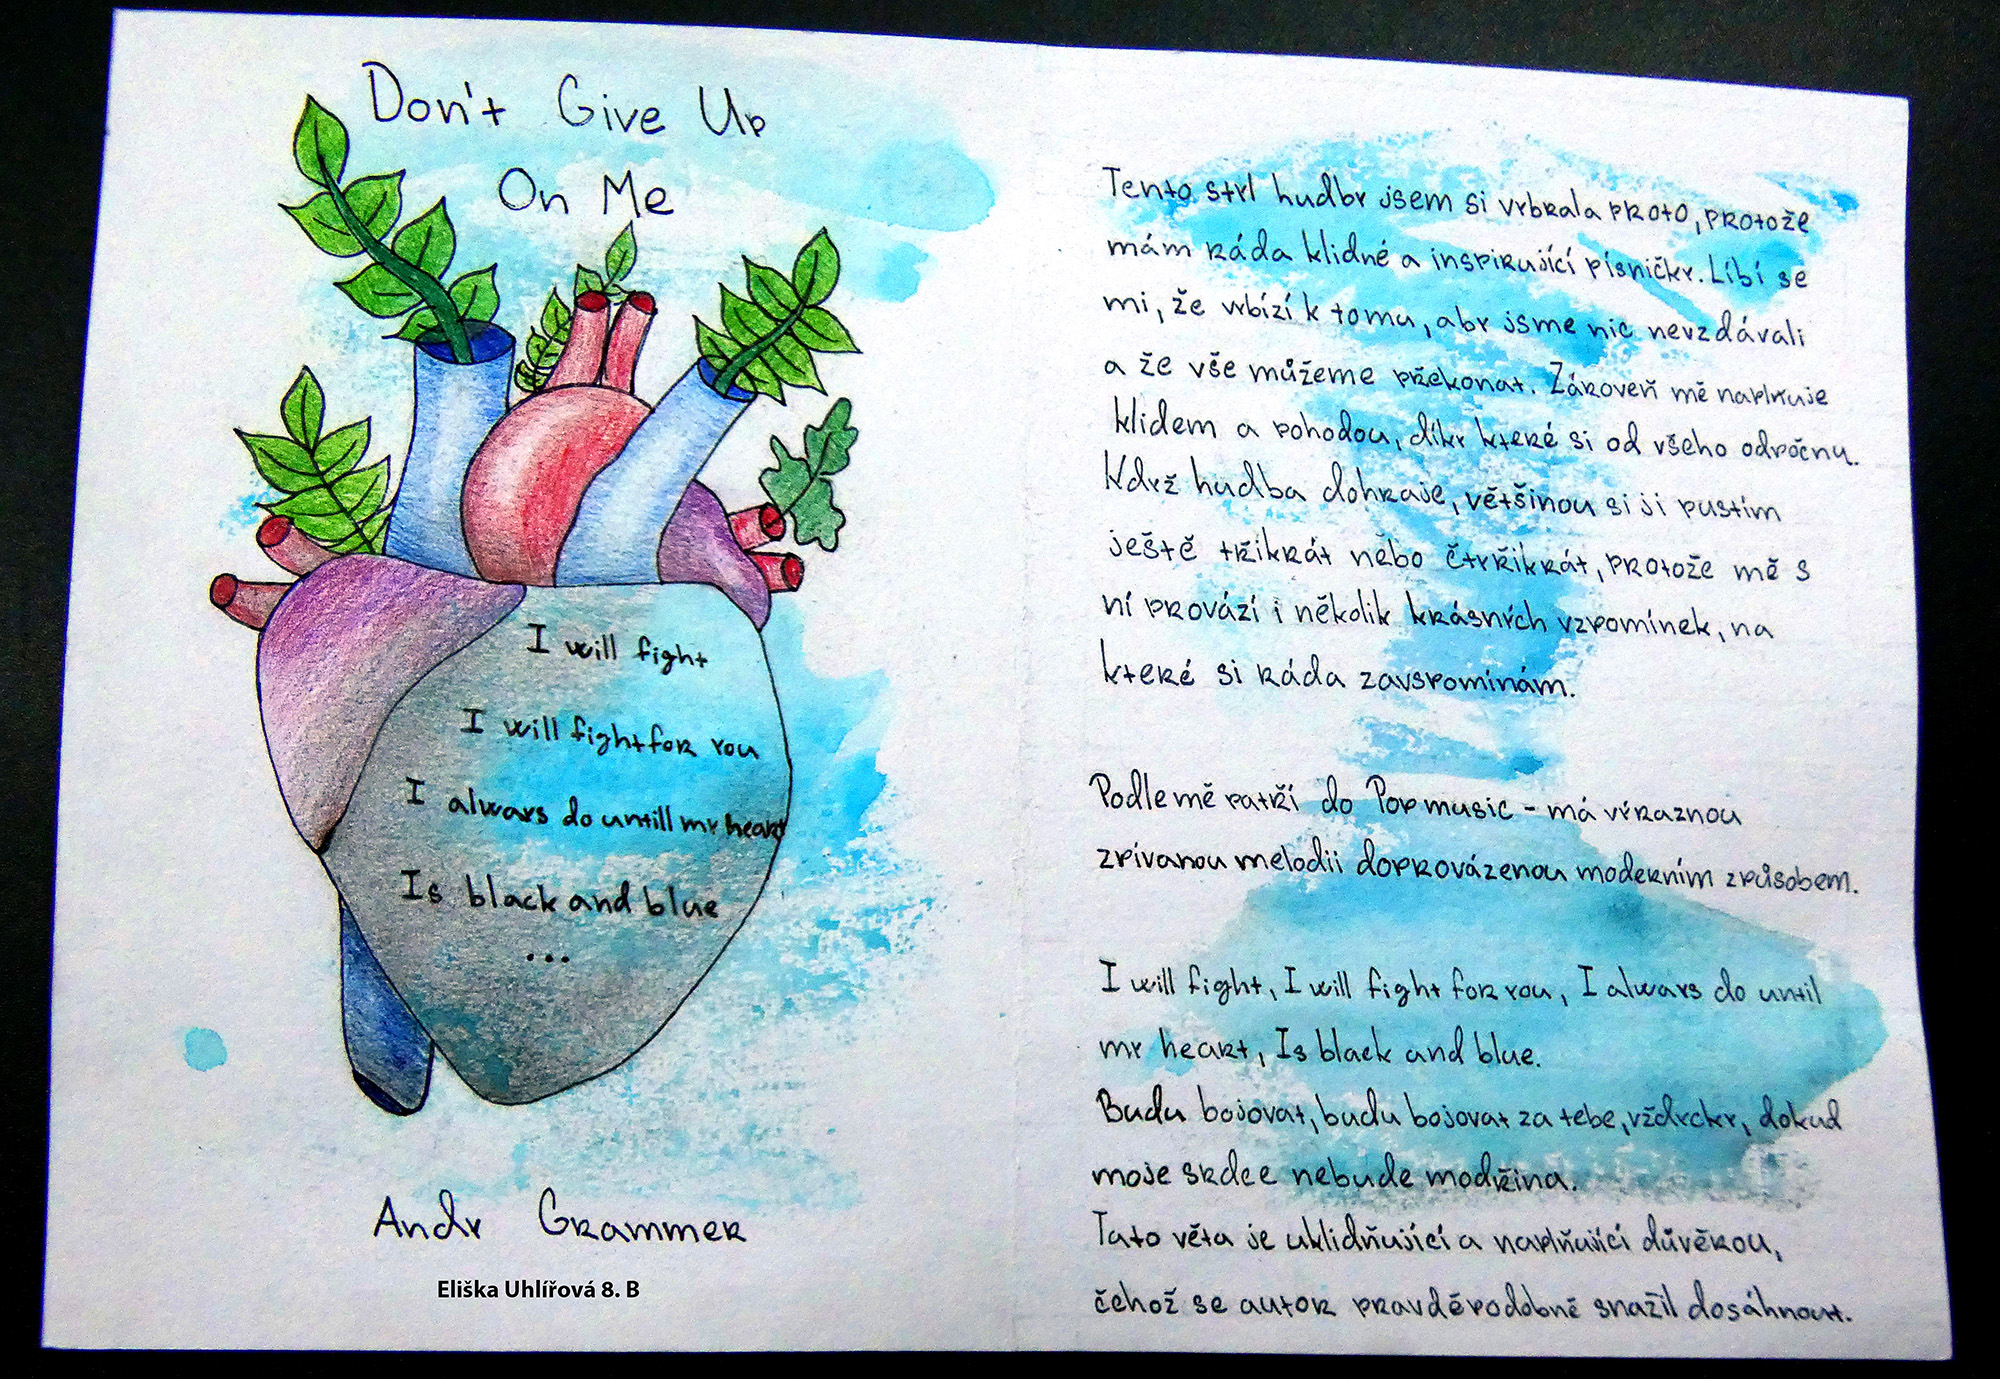 Don't Give Up
On Me
I will fight
I will fight for you
I always do untill my heart
Is black and blue
...
Andy Grammer
Eliška Uhlířová 8. B
Tento styl hudby jsem si vybrala proto, protože
mám ráda klidné a inspirující písničky. Líbí se
mi, že vybízí k tomu, aby jsme nic nevzdávali
a že vše můžeme překonat. Zároveň mě naplňuje
klidem a pohodou, díky které si od všeho odpočnu.
Když hudba dohraje, většinou si ji pustím
ještě třikrát nebo čtyřikrát, protože mě s
ní provází i několik krásných vzpomínek, na
které si ráda zavspomínám.
Podle mě patří do Pop music - má výraznou
zpívanou melodii doprovázenou moderním způsobem.
I will fight, I will fight for you, I always do until
my heart, Is black and blue.
Budu bojovat, budu bojovat za tebe, vždycky, dokud
moje srdce nebude modřina.
Tato věta je uklidňující a naplňující důvěrou,
čehož se autor pravděpodobně snažil dosáhnout.